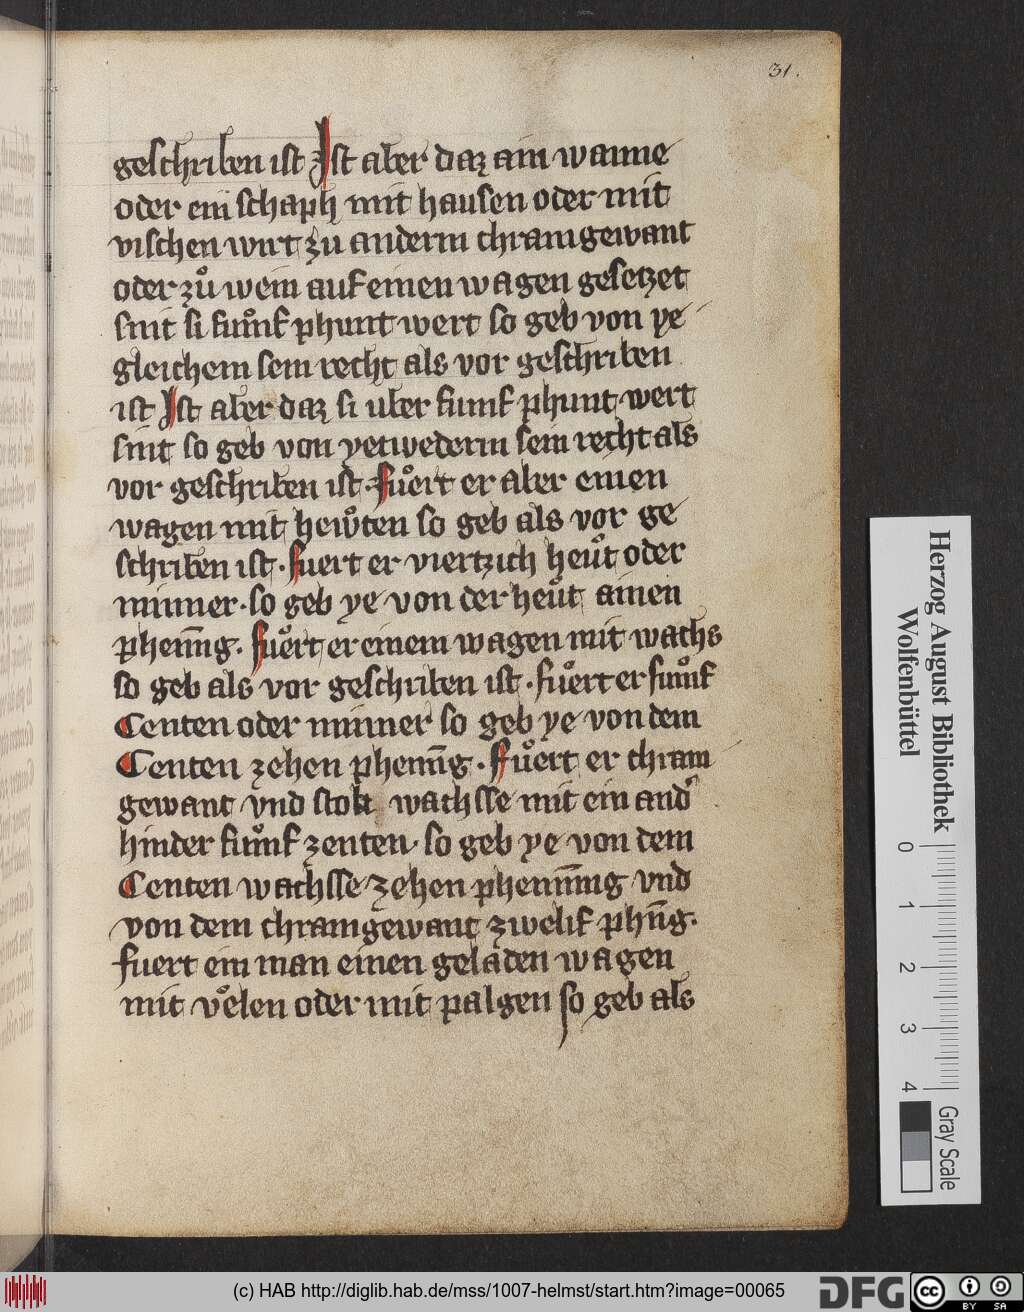 31.
geschriben ist Ist aber daz ain wanne
oder ein schaph mit hausen oder mit
vischen wirt zu anderm chramgewant
oder zuͦ wein auf einen wagen gesetzet
sint si fuͦmf phunt wert so geb von ye
gleichem sein recht als vor geschriben
ist Ist aber daz si uber fumf phunt wert
sint so geb von yetwederm sein recht als
vor geschriben ist. Fuͦert er aber einen
wagen mit hewͦten so geb als vor ge
schriben ist. Fuert er viertzich heuͦt oder
minner. so geb ye von der heuͦt ainen
phenn̄g. Fuͦert er einem wagen mit wachs
so geb als vor geschriben ist. fuͦert er fuͦmf
Centen oder minner so geb ye von dem
Centen zehen phenn̄g. Fuͦert er chram
gewant vnd stok wachsse mit ein and̾
hinder fuͦmf zenten. so geb ye von dem
Centen wachsse zehen phenn̄ing vnd
von dem chramgewant zwelif phn̄g.
fuert ein man einen geladen wagen
mit voͤlen oder mit palgen so geb als
Herzog August Bibliothek
Wolfenbüttel
0 1 2 3 4
Gray Scale
(c) HAB http://diglib.hab.de/mss/1007-helmst/start.htm?image=00065
DFG
cc BY SA